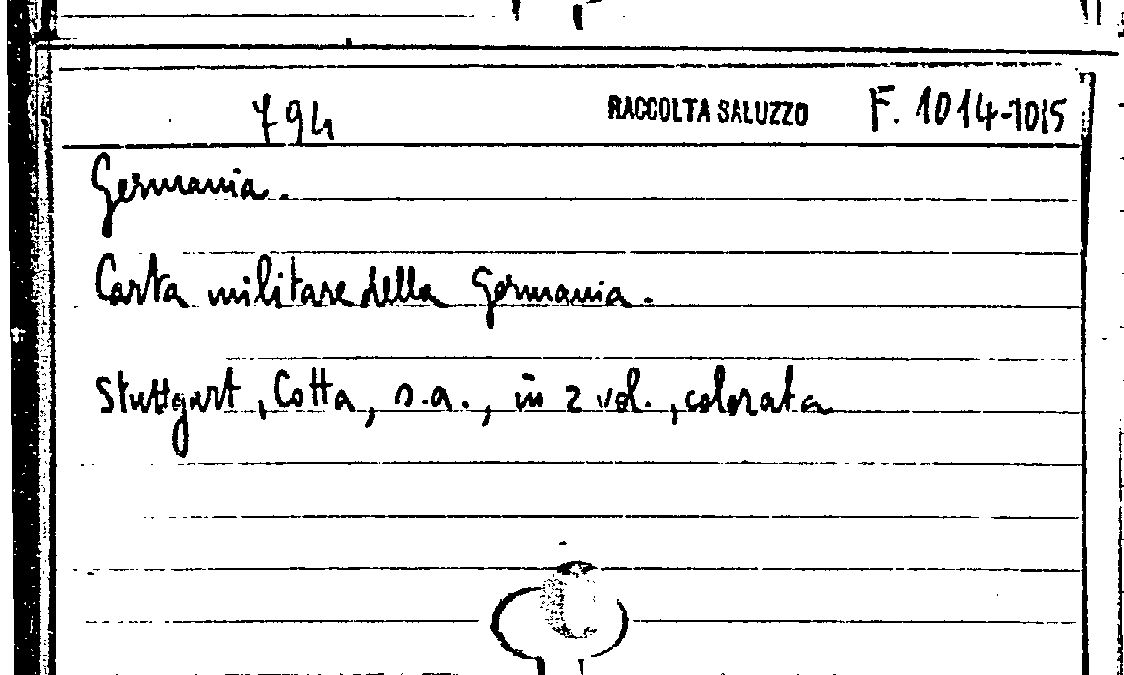 794 RACCOLTA SALUZZO F. 1014-1015
Germania.
Carta militare della Germania.
Stuttgart, Cotta, s.a., in 2 vol., colorata